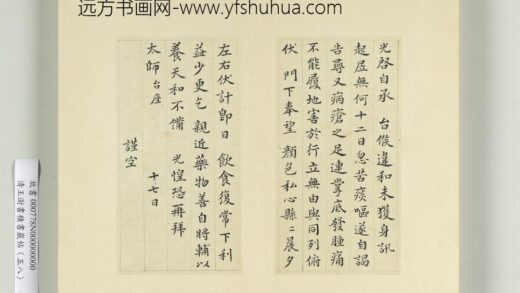 远方书画网-www.yfshuhua.com
光啓自承 台候違和未獲身訊
起居無何十二日忽苦痰嘔遂自謁
告尋又病瘡之足連掌底發腫痛
不能履地害於行立無由與同列俯
伏 門下奉望 顏色私心縣二晨夕
左右伏計即日 飲食復常下利
益少更乞 親近藥物善自將輔以
養天和不備 光惶恐再拜
太師台座
謹空
十七日
故書 000778N000000000
清王澍書積書巖帖(五八)